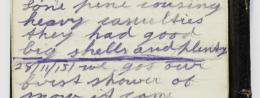 Lone pine causing
heavy casualties
they had good
big shells and plenty
28/11/15) we got our
first shower of
snow it came